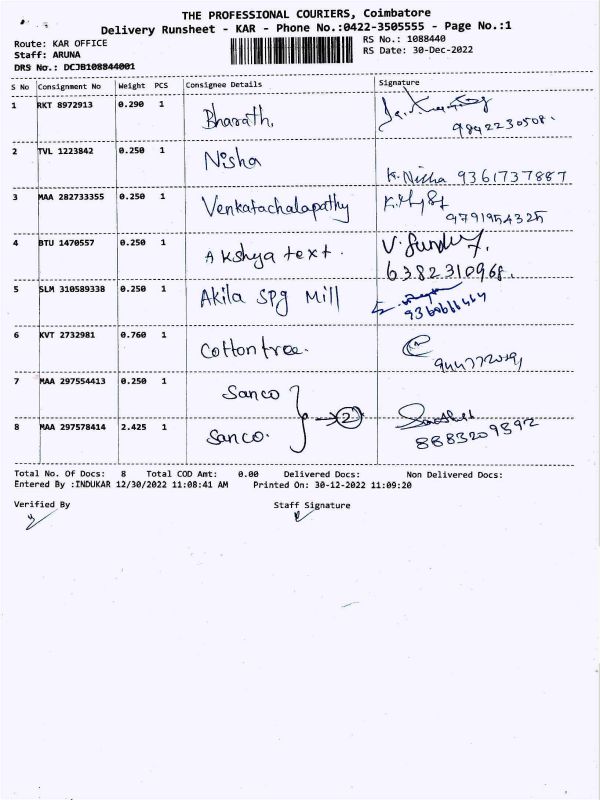 THE PROFESSIONAL COURIERS, Coimbatore
Delivery Runsheet - KAR - Phone No.:0422-3505555 - Page No.:1
Route: KAR OFFICE RS No.: 1088440
Staff: ARUNA RS Date: 30-Dec-2022
DRS No.: DCJB108844001
S No Consignment No Weight PCS Consignee Details Signature
1 RKT 8972913 0.290 1 Bharath,
9842230508.
2 TVL 1223842 0.250 1 Nisha
K. Nisha 9361737887
3 MAA 282733355 0.250 1 Venkatachalapathy
9791954325
4 BTU 1470557 0.250 1 Akshya text.
6382310968.
5 SLM 310589338 0.250 1 Akila Spg Mill
6 KVT 2732981 0.760 1 Cotton tree.
7 MAA 297554413 0.250 1 Sanco
2
8 MAA 297578414 2.425 1 Sanco.
8883209392
Total No. Of Docs: 8 Total COD Amt: 0.00 Delivered Docs: Non Delivered Docs:
Entered By :INDUKAR 12/30/2022 11:08:41 AM Printed On: 30-12-2022 11:09:20
Verified By Staff Signature